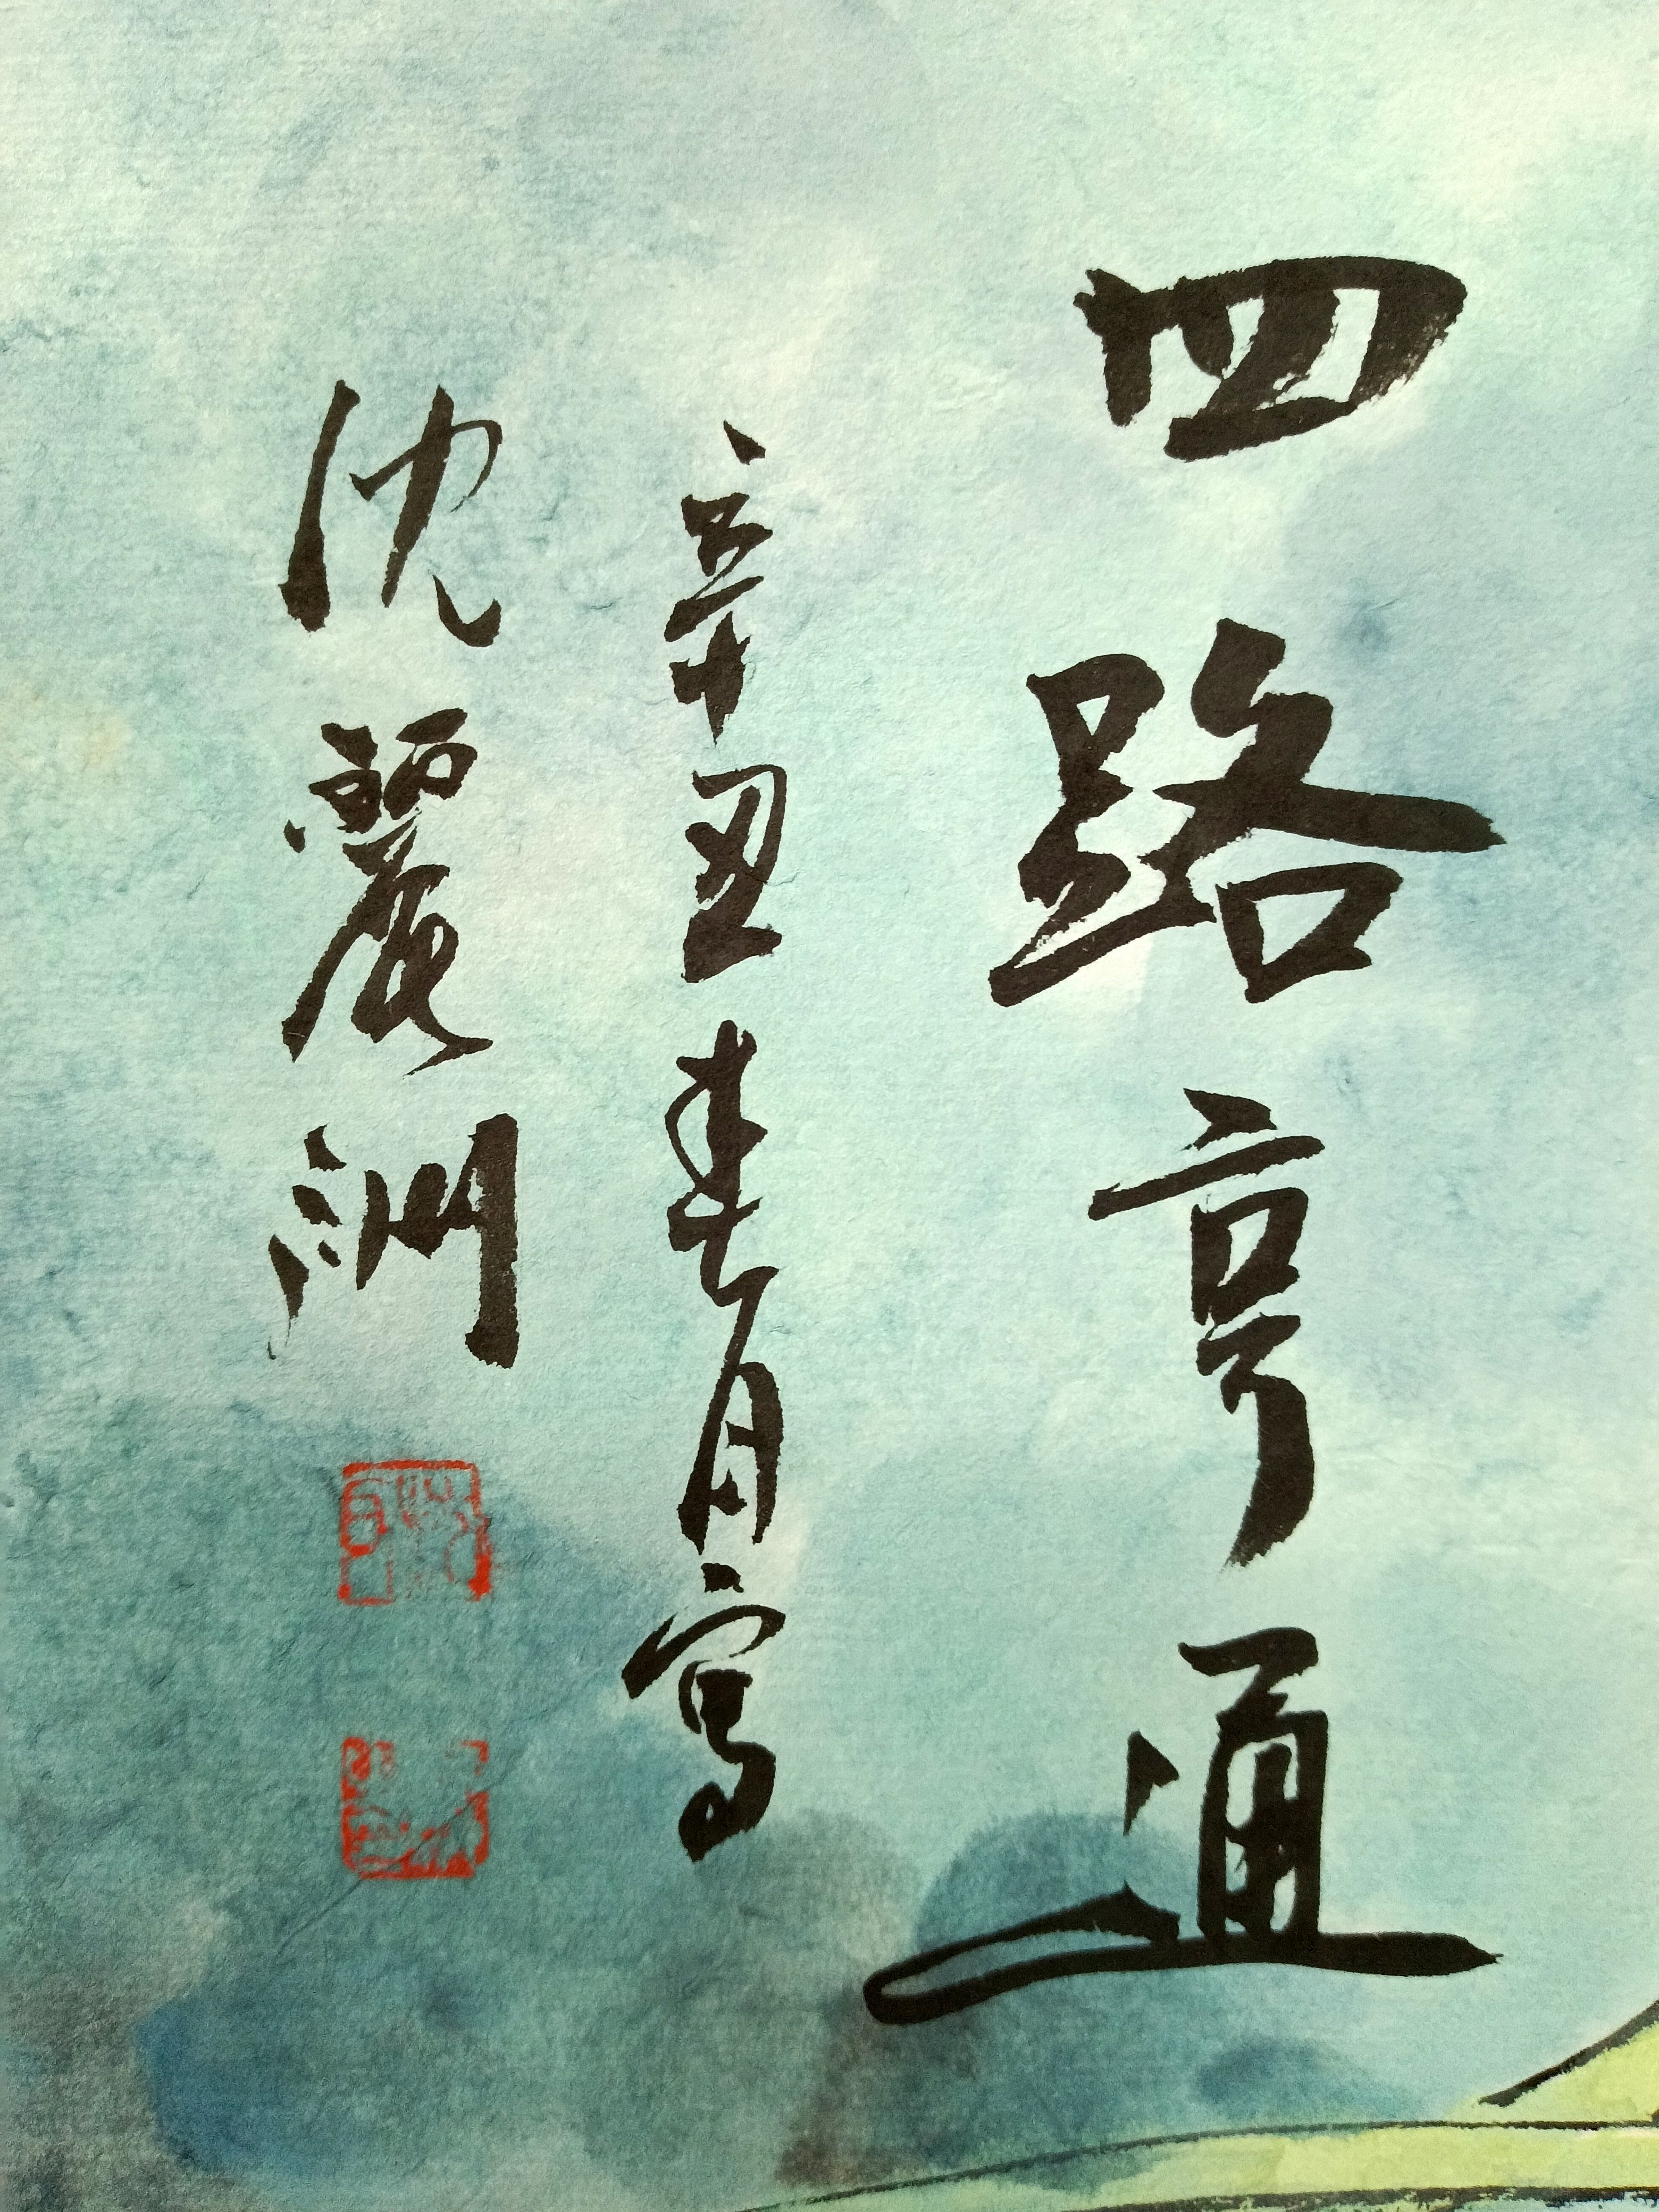 四路亨通
辛丑春月寫
沈麗洲